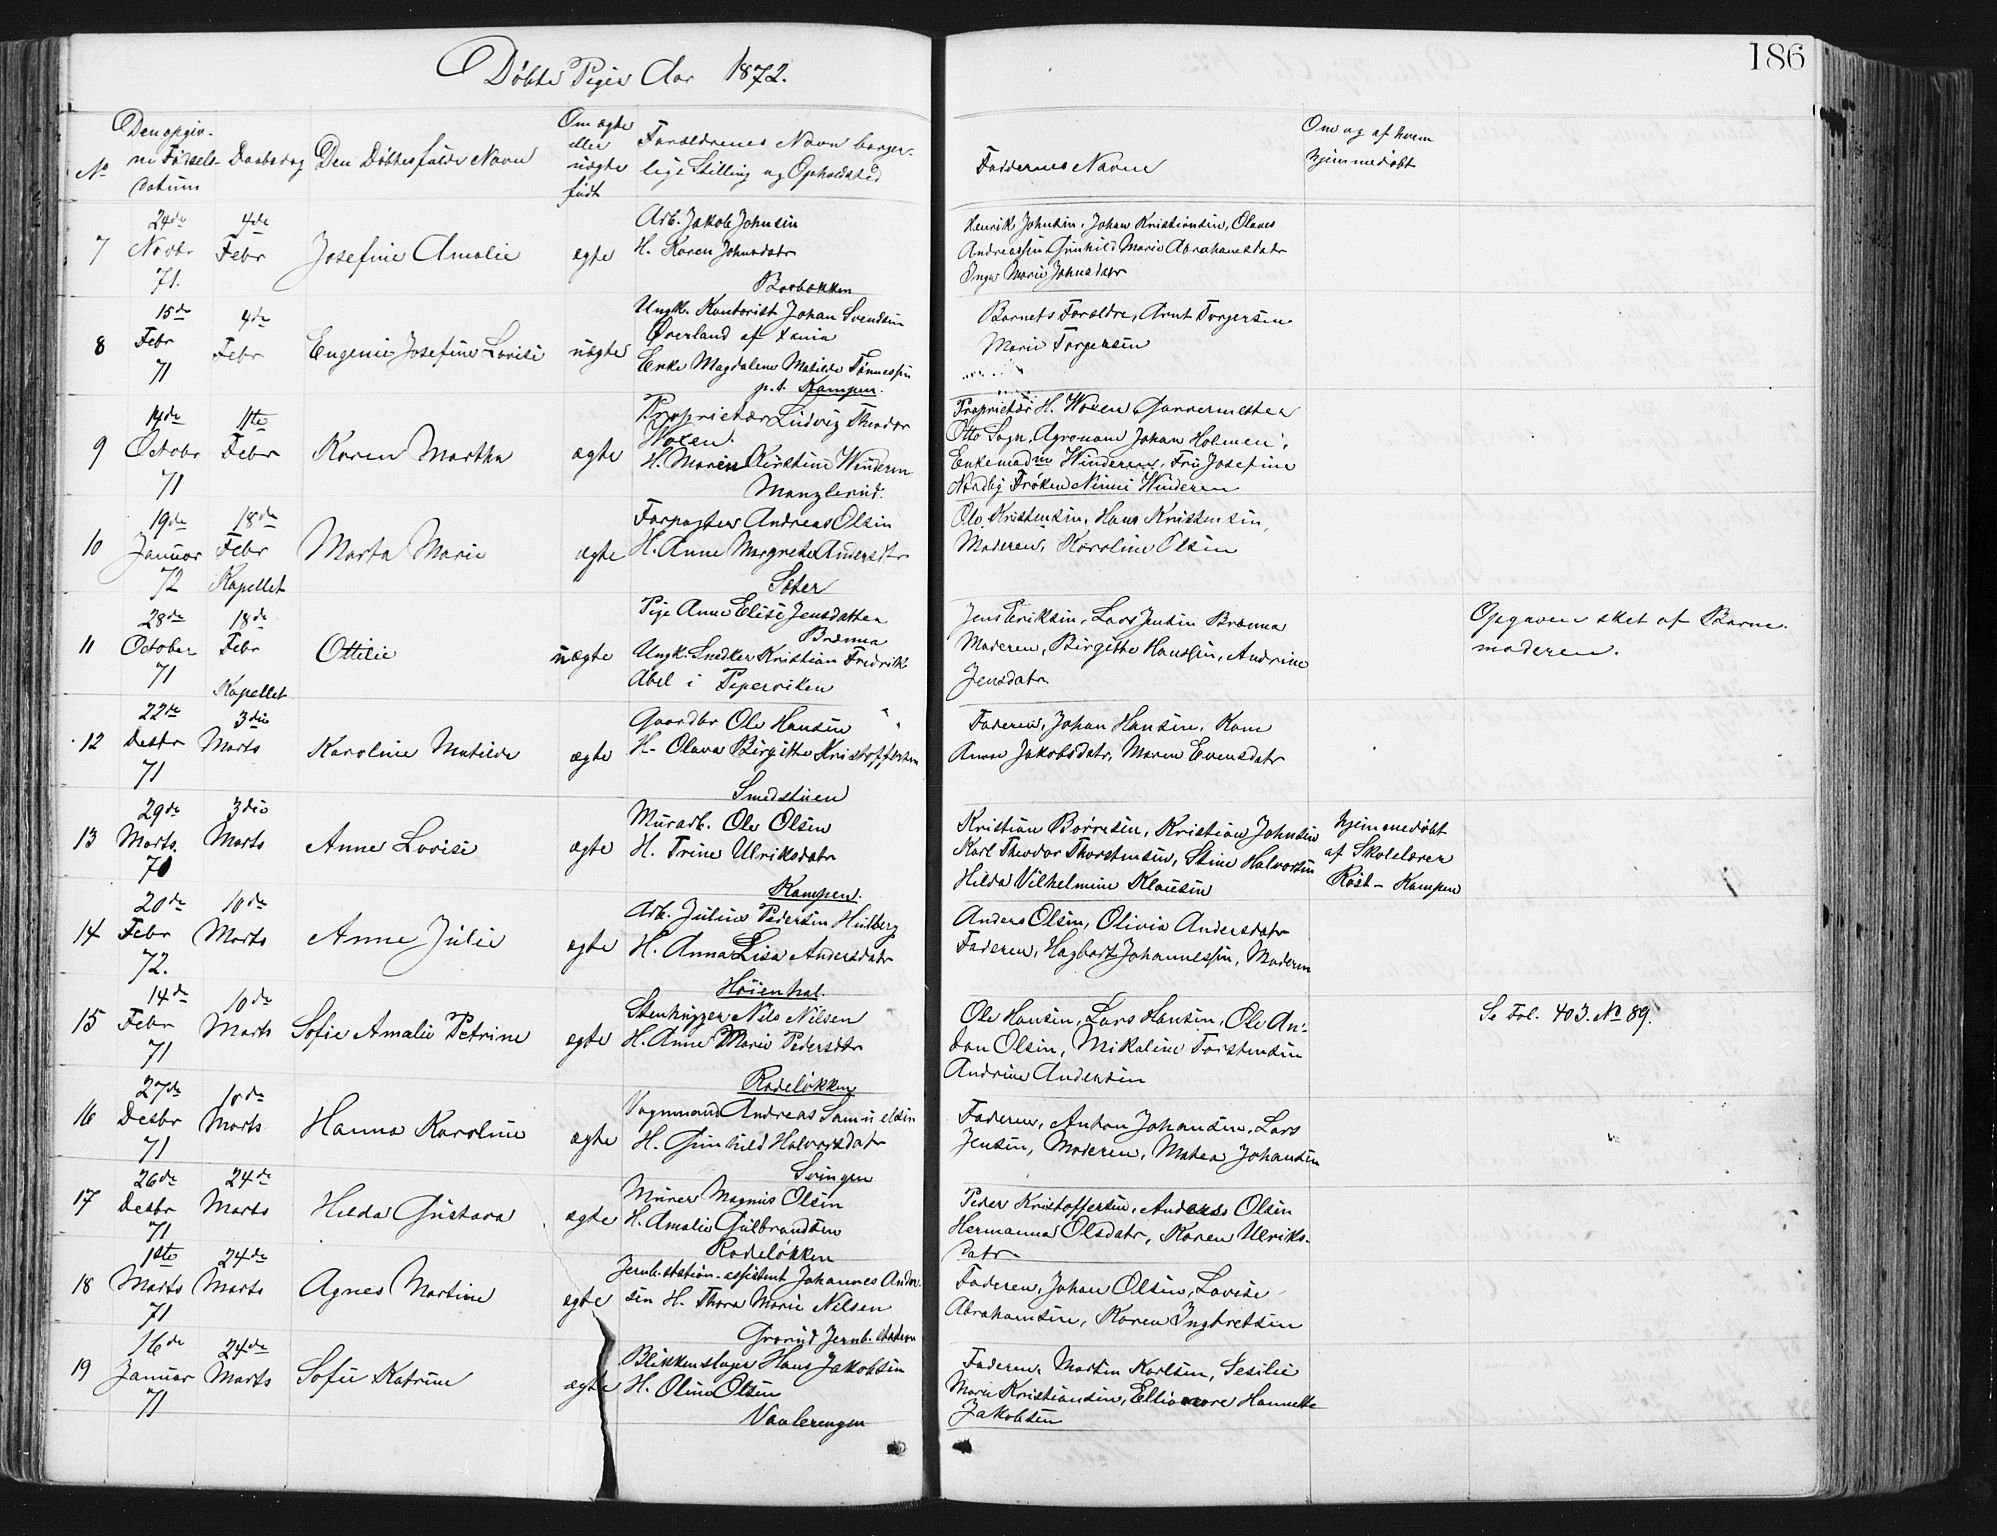 Døbte Piger Aar 1872.
186
No
Den opgiv-
ne Fødsels-
datum
Daabsdag
Den Døbtes fulde Navn
Om ægte
eller
uægte
født
Forældrenes Navn borger-
lige Stilling og Opholdsted
Faddernes Navne
Om og af hvem
hjemmedøbt
7
24de
Novbr
71.
4de
Febr
Josefine Amalie
ægte
Arb. Jakob Johnsen
H. Karen Johnsdatr
Henrik Johnsen, Johan Kristiansen, Olaves
Andreassen Gunhild Marie Abrahamsdatr
Inger Marie Johnsdatr
8
15de
Febr
71
4de
Febr
Eugenie Josefine Lovise
uægte
Ungk. Kontorist Johan Svendsen
Øverland af
Enke Magdalene Matilde Tønnessen
p.t. Kampen.
Barnets Forældre, Arnt Torgersen
Marie Torgersen
9
14de
Octobr
71
11te
Febr
Karen Martha
ægte
Proprietær Ludvig Theodor
Woxen.
H. Maren Kirstine Winderen
Manglerud.
Proprietær H. Woxen Garvermester
Otto Sogn, Agronom Johan Holmen,
Enkemadm Winderen, Frue Josefine
Nordby Frøken Ninni Winderen
10
19de
Januar
72
18de
Febr
Kapellet
Marta Marie
ægte
Forpagter Andreas Olsen
H. Anne Margrete Andersdtr
Sæter
Ole Kristensen, Hans Kristensen,
Moderen, Karoline Olsen
11
28de
October
71
18de
Febr
Kapellet
Ottilie
uægte
Pige Anne Elise Jensdatter
Brenna
Ungk. Snedker Kristian Fredrik
Abel i Piperviken
Jens Eriksen, Lars Jensen Brenna
Moderen, Birgitte Hanssen, Andrine
Jensdatr
Opgaven sket af Barne-
moderen.
12
22de
Desbr
71
3die
Marts
Karoline Matilde
ægte
Gaardbr Ole Hansen
H. Olava Birgitte Kristoffersen
Smedstuen
Faderen, Johan Hansen, Kone
Anne Jakobsdatr, Maren Evensdatr
13
29de
Marts
70
3die
Marts
Anne Lovise
ægte
Murarb. Ole Olsen
H. Trine Ulriksdatr
Kampen.
Kristian Børresen, Kristian Johnsen
Karl Theodor Thorstensen, Stine Halvorsen
Hilda Vilhelmine Klausen
hjemmedøbt
af Skolelærer
Røst - Kampen
14
20de
Febr
72.
10de
Marts
Anne Julie
ægte
Arb. Julius Pedersen Hulberg
H. Anna Lisa Andersdatr
Høienhal.
Anders Olsen, Olivia Andersdatr
Faderen, Hagbart Johannessen, Moderen
15
14de
Febr
71
10de
Marts
Sofie Amalie Petrine
ægte
Stenhugger Nils Nilsen
H. Anne Marie Pedersdtr
Rodeløkken
Ole Hansen, Lars Hansen, Ole An-
don Olsen, Mikaline Torstensen
Andrine Andersen
Se Fol. 403. No 89.
16
27de
Desbr
71
10de
Marts
Hanna Karoline
ægte
Vognmand Andreas Samuelsen
H. Gunhild Halvorsdatr
Svingen
Faderen, Anton Johansen, Lars
Jensen, Moderen, Matea Johansen
17
26de
Desbr
71
24de
Marts
Hilda Gustava
ægte
Murer Magnus Olsen
H. Amalie Gulbrandsen
Rodeløkken
Peder Kristoffersen, Anders Olsen
Hermanna Olsdatr, Karen Ulriks-
datr
18
1ste
Marts
71
24de
Marts
Agnes Martine
ægte
Jernb.station-assistent Johannes Ander-
sen H. Thora Marie Nilsen
Grorud Jernb.station
Faderen, Johan Olsen, Lovise
Abrahamsen, Karen Ingbretsen
19
16de
Januar
71
24de
Marts
Sofie Katrine
ægte
Blikkenslager Hans Jakobsen
H. Oline Olsen
Vaalerengen
Faderen, Martin Karlsen, Sesilie
Marie Kristiansen, Ellionore Hannette
Jakobsen